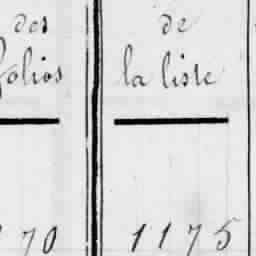 des
folios
de
la liste
70
1175